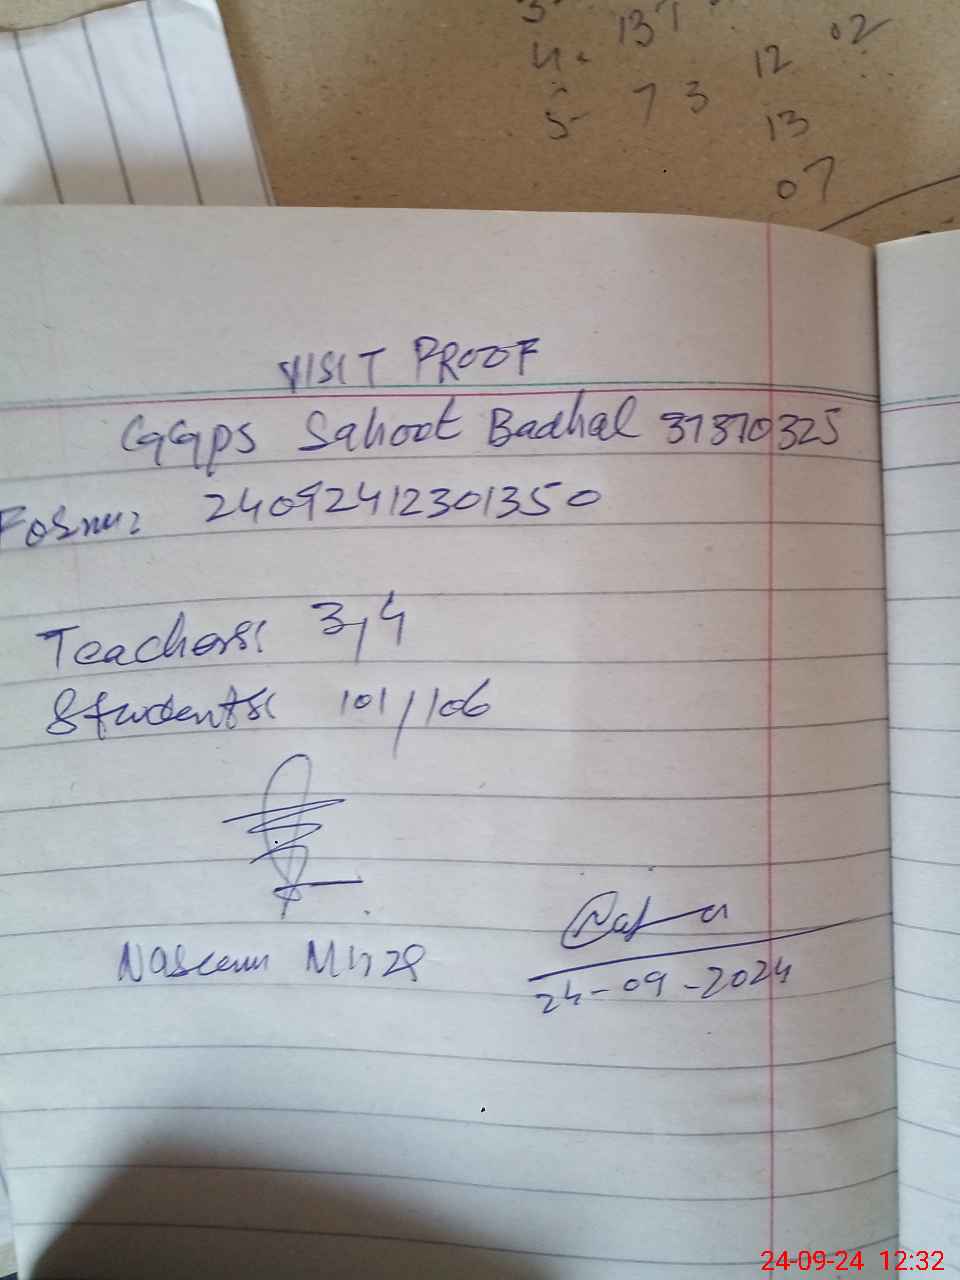 5
4. 137
12 02
5- 73
13
07
VISIT PROOF
GGPS Sahoot Badhal 37370325
Form: 24092412301350
Teachers: 3,4
Students: 101/106
Naseem Mirza
24-09-2024
24-09-24 12:32